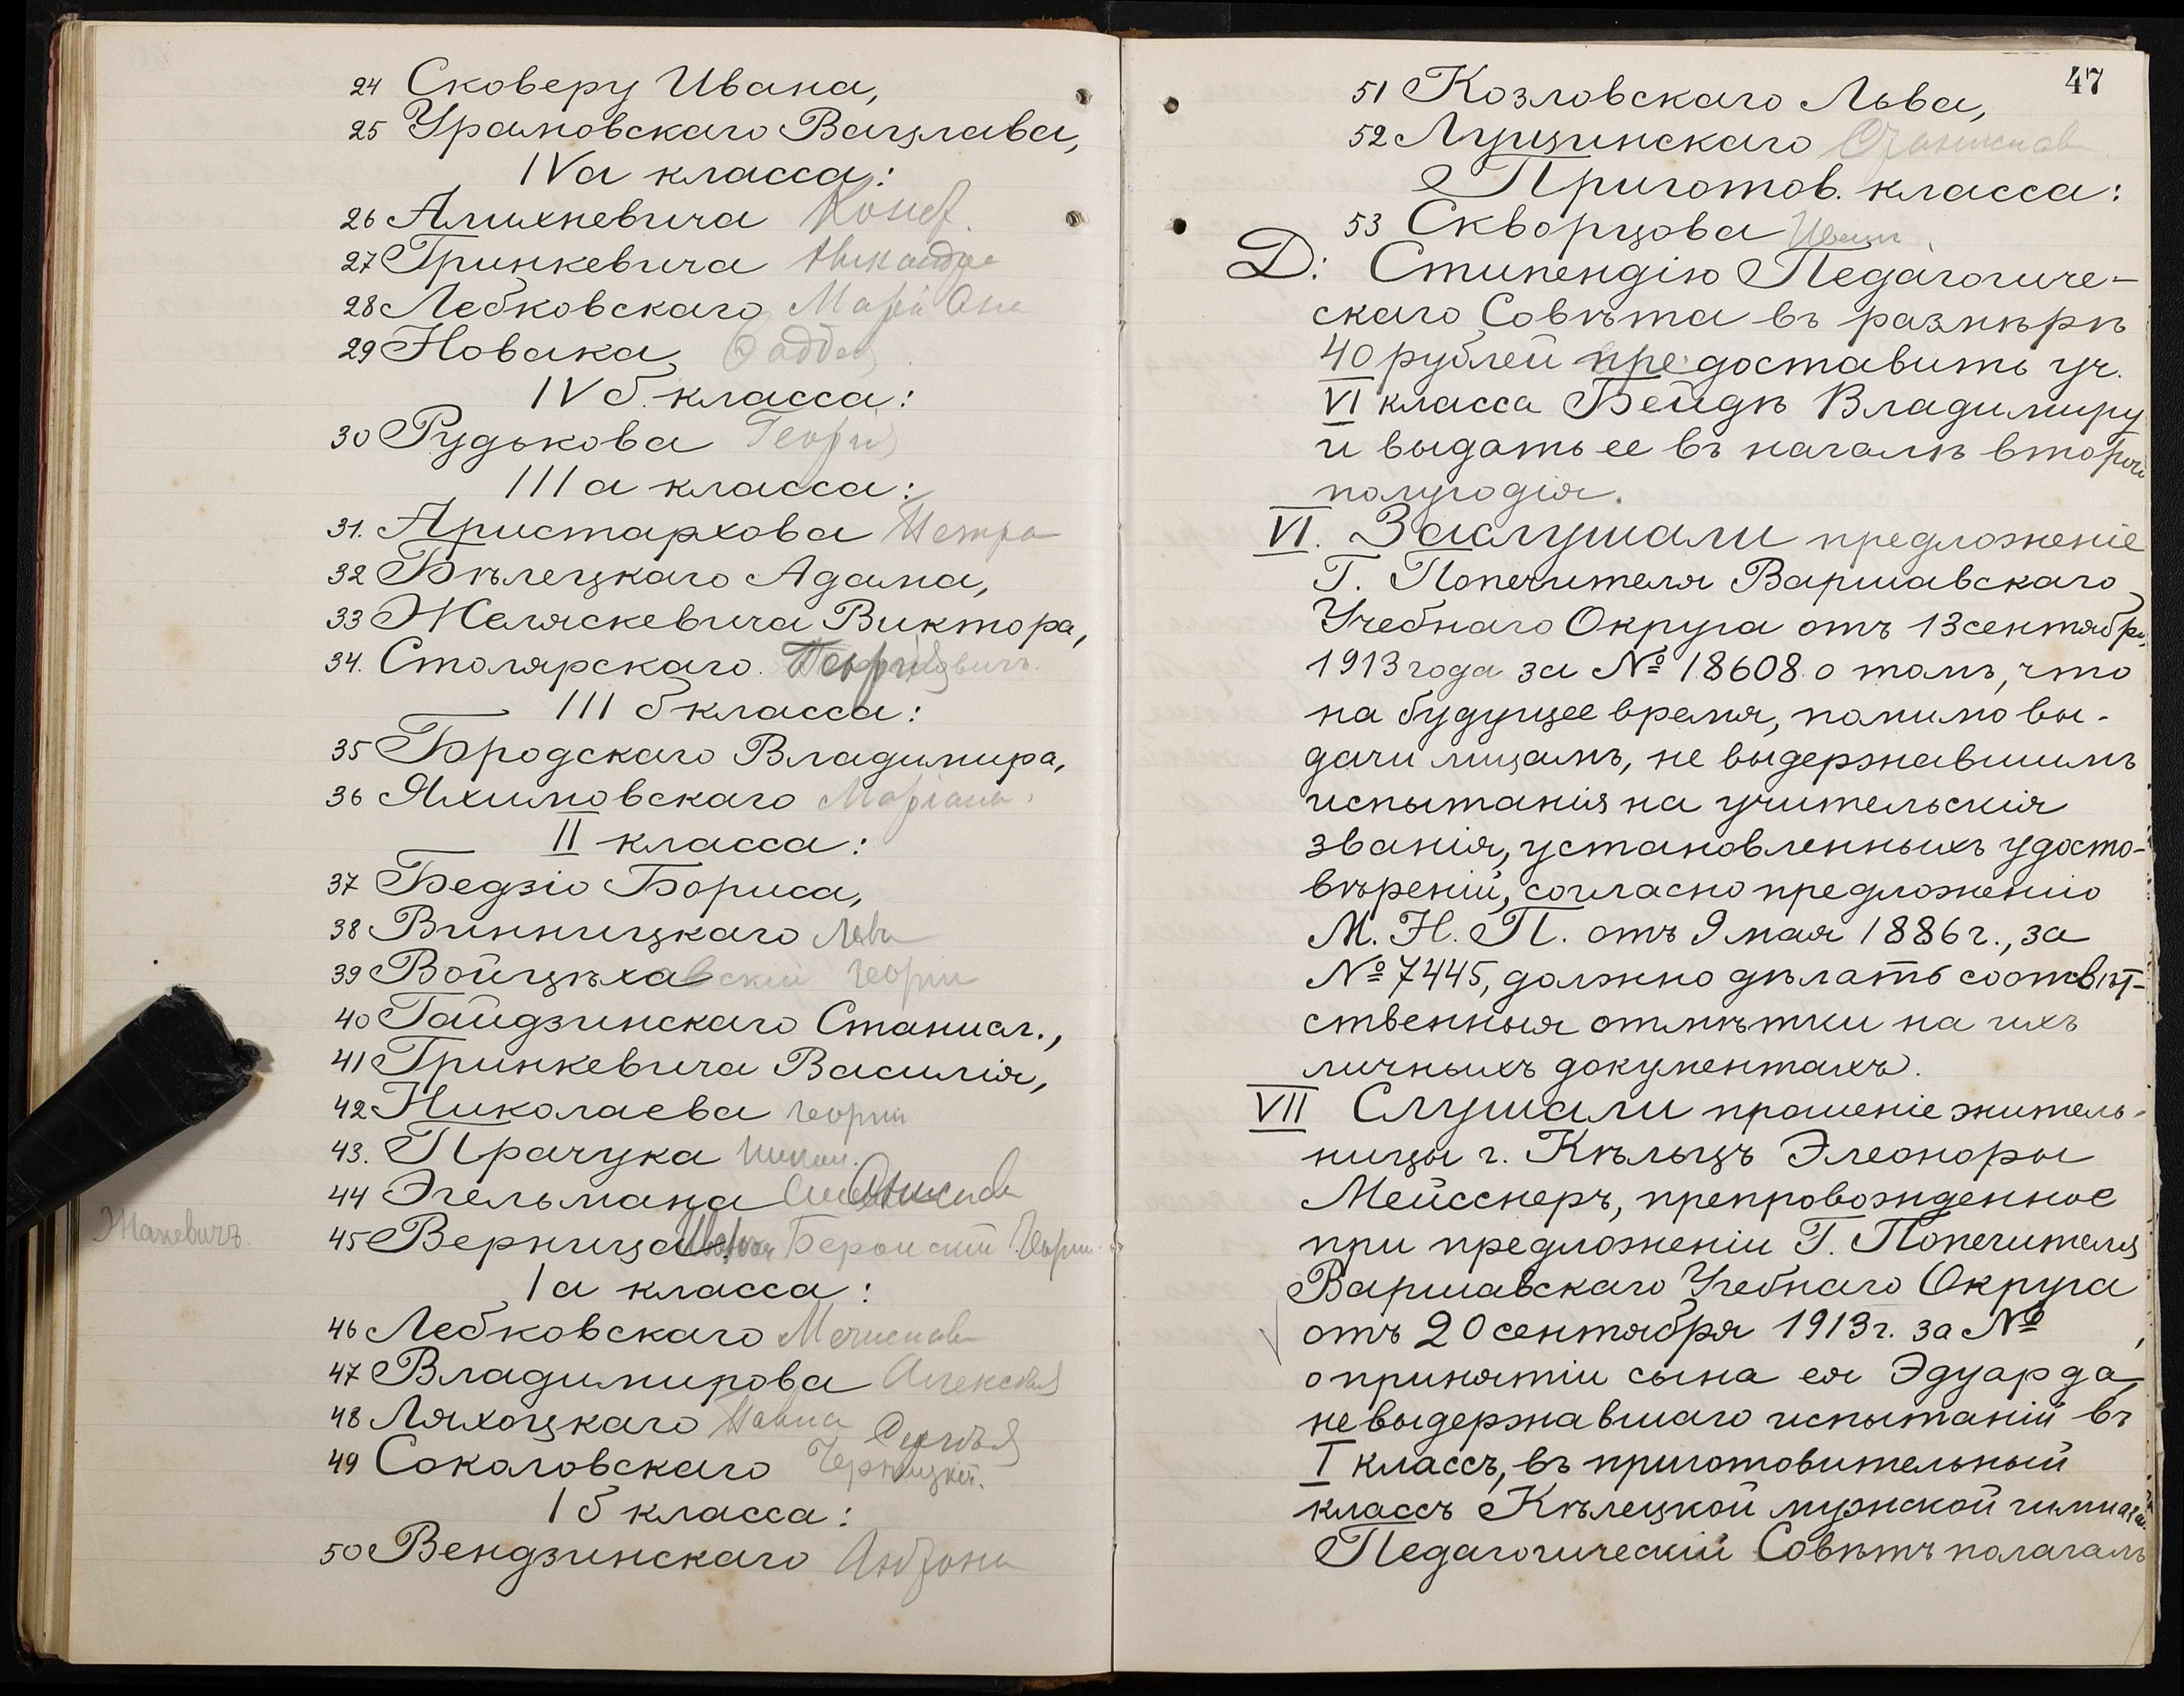 24 Сковеру Ивана,
25 Урамовскаго Вацлава,
IVа класса:
26 Алихневича
27 Гринкевича
28 Лебковскаго
29 Новака
IV б. класса:
30 Рудькова Георгія
III а класса:
31. Аристархова Петра
32 Бѣлецкаго Адама,
33 Желяскевича Виктора,
34. Столярскаго.
III б класса:
35 Бродскаго Владимира,
36 Яхимовскаго Маріана,
II класса:
37 Бедзю Бориса,
38 Винницкаго Льва
39 Войцѣха
40 Гайдзинскаго Станисл.,
41 Гринкевича Василія,
42 Николаева
43. Прачука
44 Эгельмана
Жакевичъ.
45 Верница
Iа класса:
46 Лебковскаго
47 Владимирова
48 Ляхоцкаго Павла
49 Соколовскаго
I б класса:
50 Вендзинскаго Антона
47
51 Козловскаго Льва,
52 Лущинскаго
Приготов. класса:
53 Скворцова
D: Стипендію Педагогиче-
скаго Совѣта въ размѣрѣ
40 рублей предоставить уч.
VI класса Бейдѣ Владимиру
и выдать ее въ началѣ второй
полугодія.
VI. Заслушали предложеніе
Г. Попечителя Варшавскаго
Учебнаго Округа отъ 13 сентября
1913 года за № 18608 о томъ, что
на будущее время, помимо вы-
дачи лицамъ, не выдержавшимъ
испытанія на учительскія
званія, установленныхъ удосто-
вѣреній, согласно предложенію
М. Н. П. отъ 9 мая 1886 г., за
№ 7445, должно дѣлать соотвѣт-
ственныя отмѣтки на ихъ
личныхъ документахъ.
VII Слушали прошеніе житель-
ницы г. Кѣльцъ Элеоноры
Мейсснеръ, препровожденное
при предложеніи Г. Попечителя
Варшавскаго Учебнаго Округа
отъ 20 сентября 1913 г. за № ,
о принятіи сына ея Эдуарда,
не выдержавшаго испытаній въ
I классъ, въ приготовительный
классъ Кѣлецкой мужской гимназіи
Педагогическій Совѣтъ полагалъ